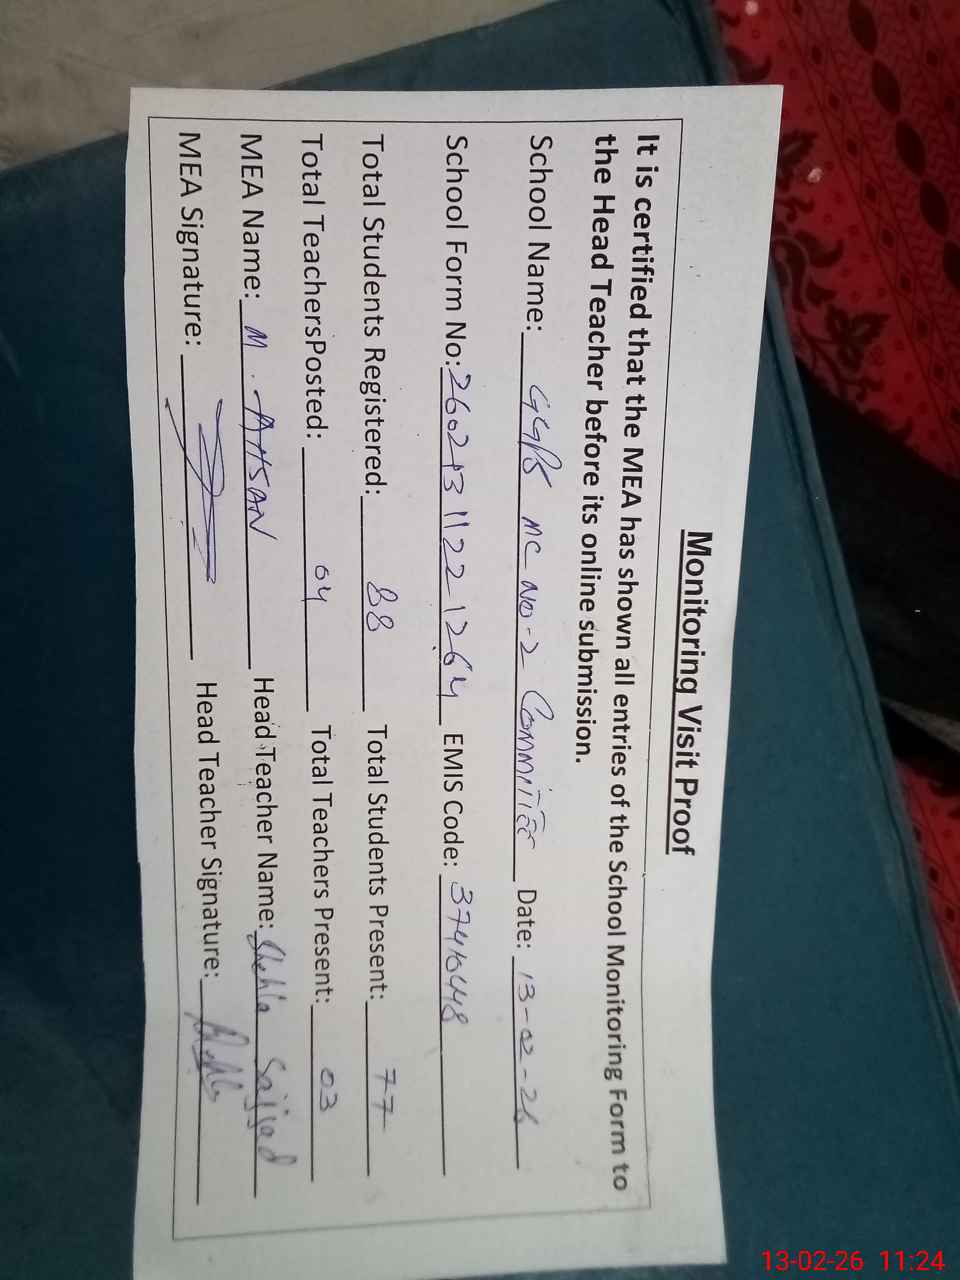 Monitoring Visit Proof
It is certified that the MEA has shown all entries of the School Monitoring Form to
the Head Teacher before its online submission.
School Name: GGPS MC NO-2 Committee Date: 13-02-26
School Form No: 2602131122 1264 EMIS Code: 37410448
Total Students Registered: 88 Total Students Present: 77
Total TeachersPosted: 04 Total Teachers Present: 03
MEA Name: M. AHSAN Head Teacher Name: Shehla Sajjad
MEA Signature: Head Teacher Signature:
13-02-26 11:24